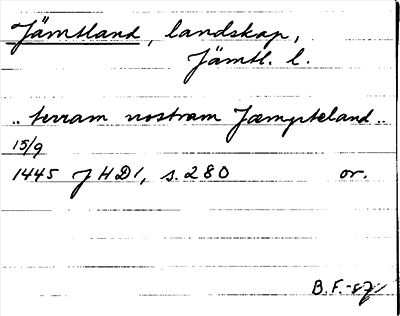 Jämtland, landskap,
Jämtl. l.
.. terram nostram Jæmpteland ..
15/9
1445 JHD1, s. 280 or.
B.F.-87